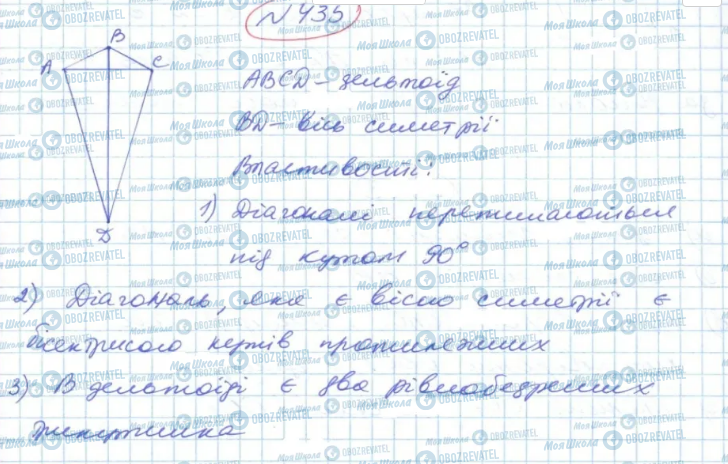 № 435
B
A C
ABCD – дельтоїд
BD – вісь симетрії
Властивості:
1) Діагоналі перетинаються
D
під кутом 90°
2) Діагональ, яка є віссю симетрії є
бісектрисою кутів протилежних
3) В дельтоїді є два рівнобедрених
трикутника